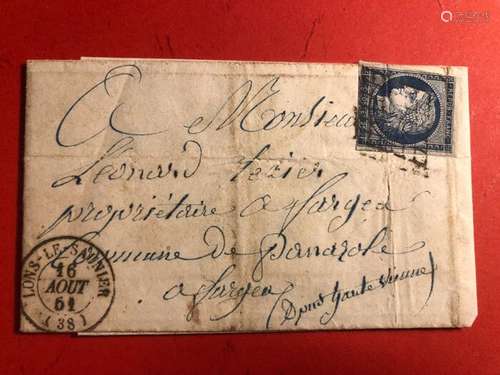 A Monsieur
Léonard Texier
propriétaire a Sargea
Commune de panazole
a Sargea
(Dpmt haute vienne)
LONS-LE-SAUNIER
16
AOUT
51
(38)